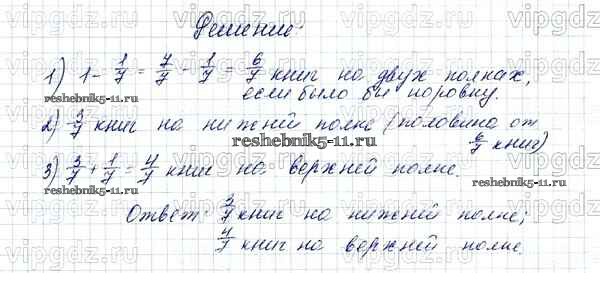 Решение:
1) 1 - 1/7 = 7/7 - 1/7 = 6/7 книг на двух полках,
если было бы поровну.
reshebnik5-11.ru
2) 3/7 книг на нижней полке (половина от
6/7 книг)
reshebnik5-11.ru
3) 3/7 + 1/7 = 4/7 книг на верхней полке.
reshebnik5-11.ru
reshebnik5-11.ru
Ответ: 3/7 книг на нижней полке;
4/7 книг на верхней полке.
vipgdz